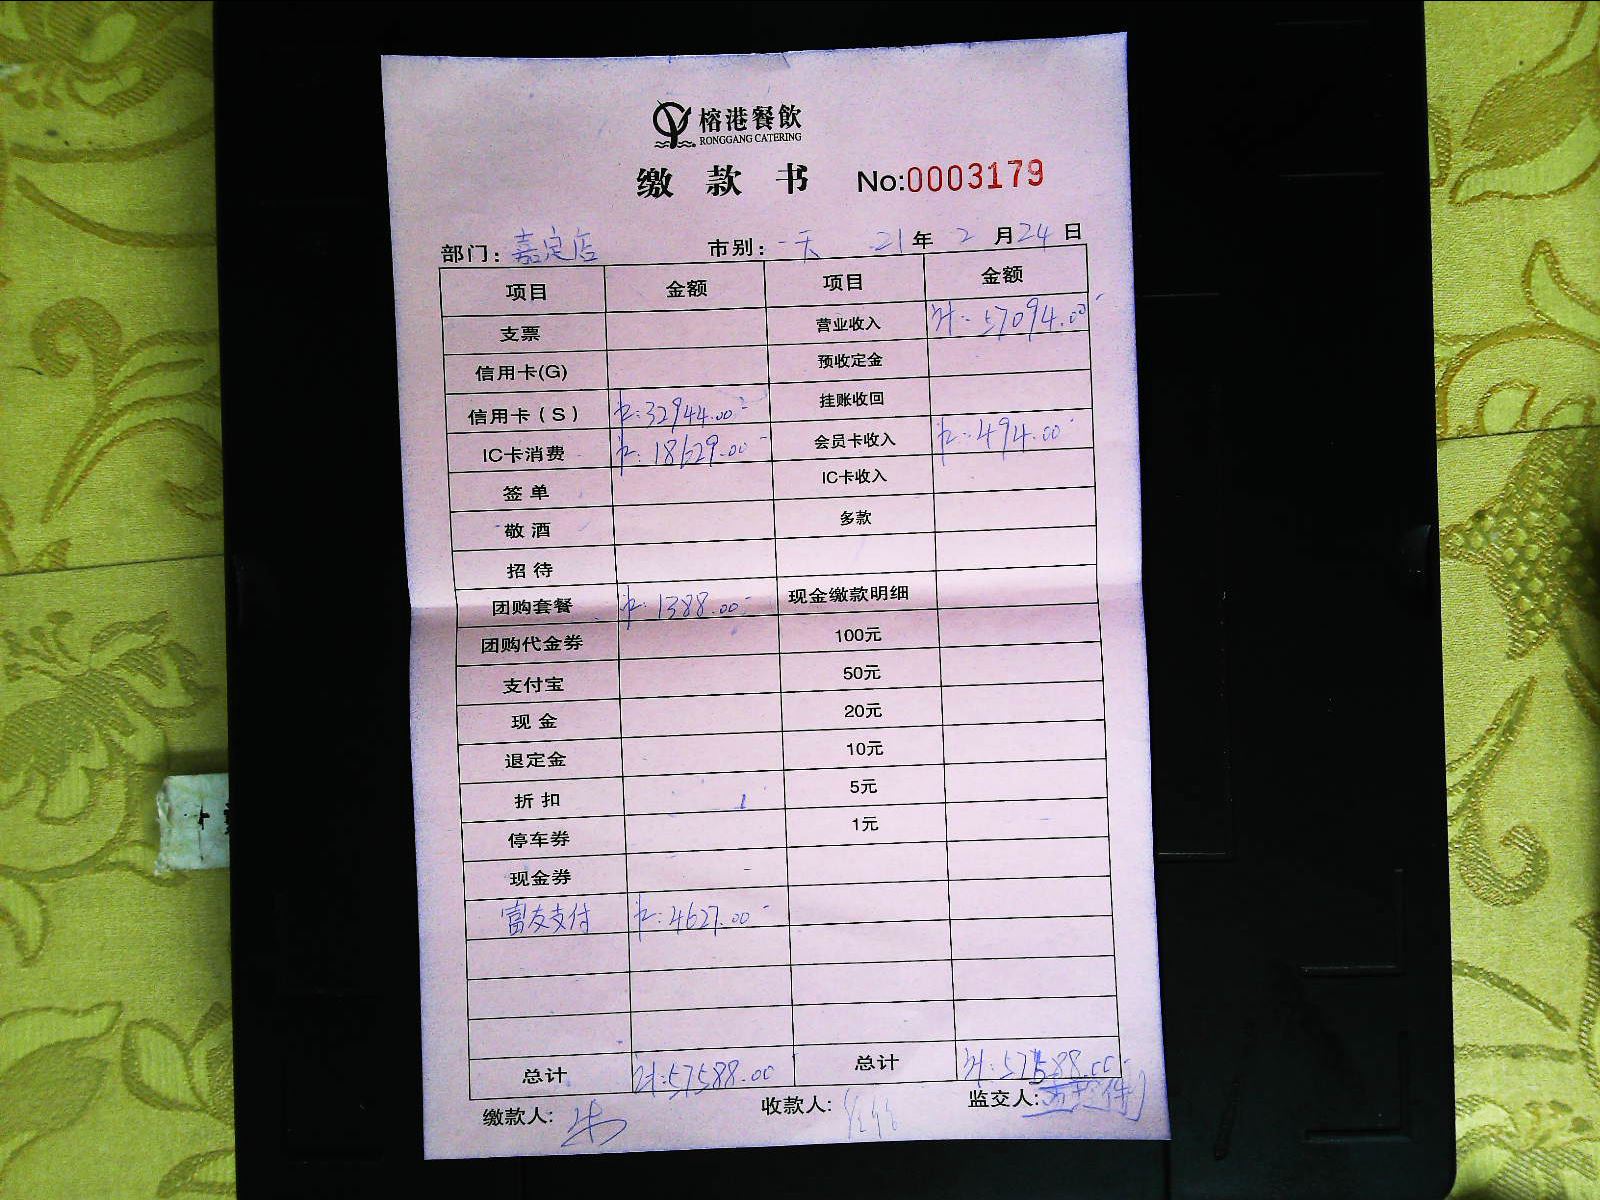 榕港餐飲
RONGGANG CATERING
缴款书 No:0003179
部门: 嘉定店 市别: 一天 21年 2月24日
项目 金额 项目 金额
支票 营业收入 计: 57094.00
信用卡(G) 预收定金
信用卡(S) 卡: 32944.00 挂账收回
IC卡消费 卡: 18629.00 会员卡收入 卡: 494.00
签单 IC卡收入
敬酒 多款
招待
团购套餐 卡: 1388.00 现金缴款明细
团购代金券 100元
支付宝 50元
现金 20元
退定金 10元
折扣 5元
停车券 1元
现金券
富友支付 卡: 4627.00
总计 计: 57588.00 总计 计: 57588.00
缴款人: 收款人: 监交人: